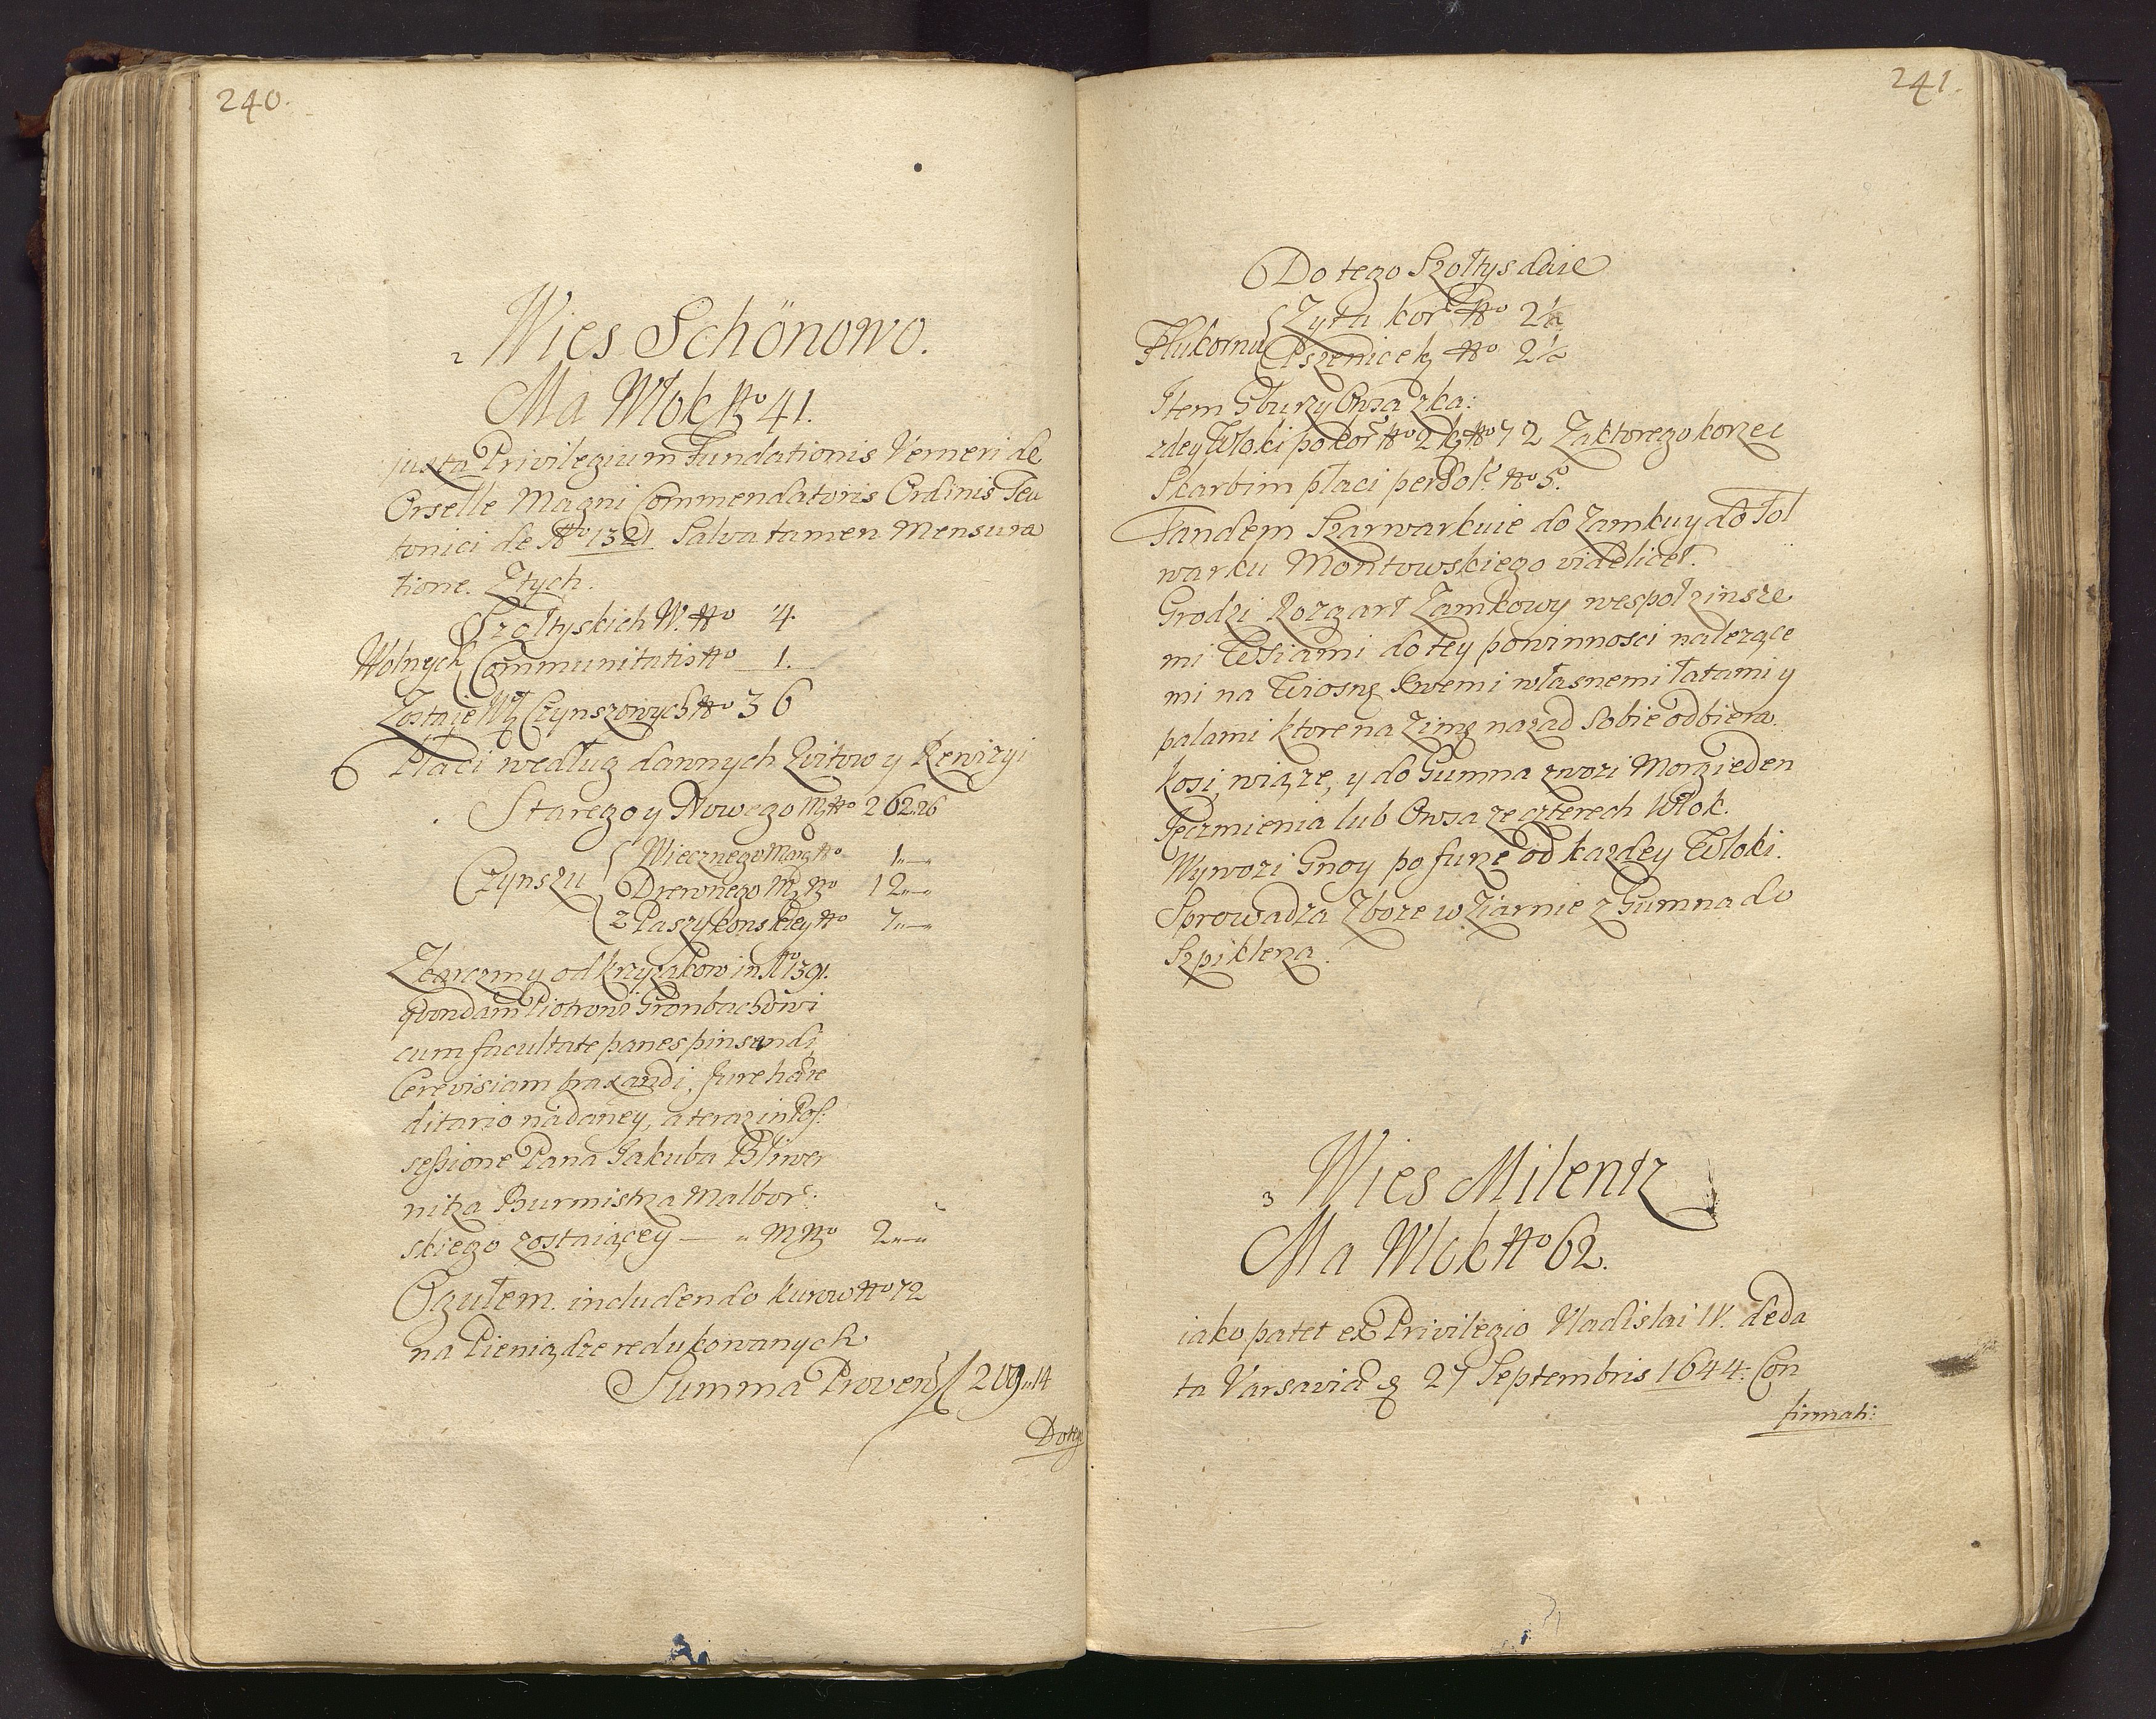 240.
2 Wies Schönowo.
Ma Włok No 41.
juxta Privilegium Fundationis Verneri de
Orselle Magni Commendatoris Ordinis Teu
tonici de Ao 1321 Salva tamen Mensura
tione. Ztych.
Szołtyskich W. No 4.
Wolnych Communitatis No 1.
Zostaje Włk Czynszowych No 36
Płaci według dawnych Kwitow y Rewizyi
Starego y Nowego No 262..26
Czynszu Wiecznego No 1..—
Drewnego No 12..—
z Paszy Konskiey No 7..—
Zkarczmy od krzyżakow in Ao 1391.
qvondam Piotrowi Gronbachowi
cum facultate panes pinsendi
Cerevisiam braxandi, Jure hære
ditario nadaney, a teraz in Pos:
sessione Pana Jakuba
nitza Burmistrza Malbor:
skiego zostaiącey — No 2..—..
Ogułem includendo kurow No 72
na Pieniądze redukowanych
Summa Proven 209..14
Dotego
241.
Do tego Szołtys daie
Żyta kor No 2½
Płukorna Pszenice k No 2½
Item Gburzy Owsa zka:
zdey Włoki po kor No 2 No 72 Zaktorego korzec
Skarbim płaci per No 5.
Tandem Szarwarkuie do Zamku y do Fol
warku Montowskiego videlicet.
Grodzi Rozgart Zamkowy wespoł zinsze
mi Wsiami do tey powinnosci należące
mi na Wiosnę Swemi własnemi łatami y
palami ktore na Zimę nazad sobie odbiera.
Kosi, wiąże, y do Gumna zwozi Morg ieden
Jęczmienia lub Owsa ze czterech Włok.
Wywozi Gnoy po furze od kazdey Włoki.
Sprowadza Zboze w Ziarnie z Gumna do
Szpiklerza.
3 Wies Milentz
Ma Włok No 62.
iako patet ex Privilegio Vladislai IV. de da
ta Varsaviæ 27 Septembris 1644. Con
firmati: